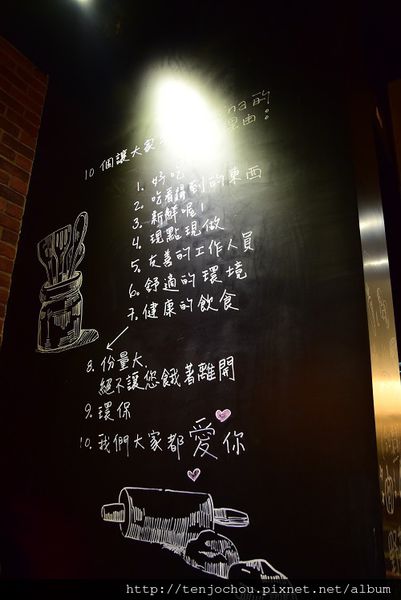 10個讓大家 na的
理由：
1. 好吃
2. 吃着購到的東西
3. 新鮮喔！
4. 現點現做
5. 友善的工作人員
6. 舒適的環境
7. 健康的飲食
8. 份量大
絕不讓您餓著離開
9. 環保
10. 我們大家都愛你
http://tenjochou.pixnet.net/album